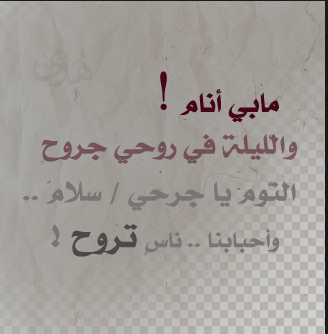 مابي أنام !
والليلة في روحي جروح
النوم يا جرحي / سلام ..
وأحبابنا .. ناس تروح !